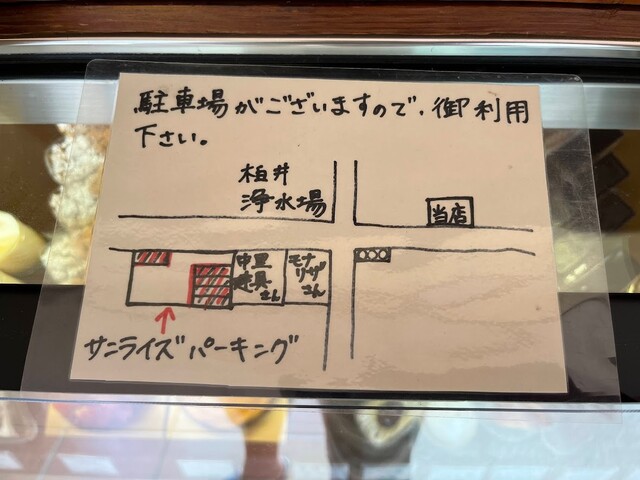 駐車場がございますので、御利用
下さい。
柏井
浄水場
当店
中里
建具
さん
モナ
リーザ
さん
サンライズパーキング